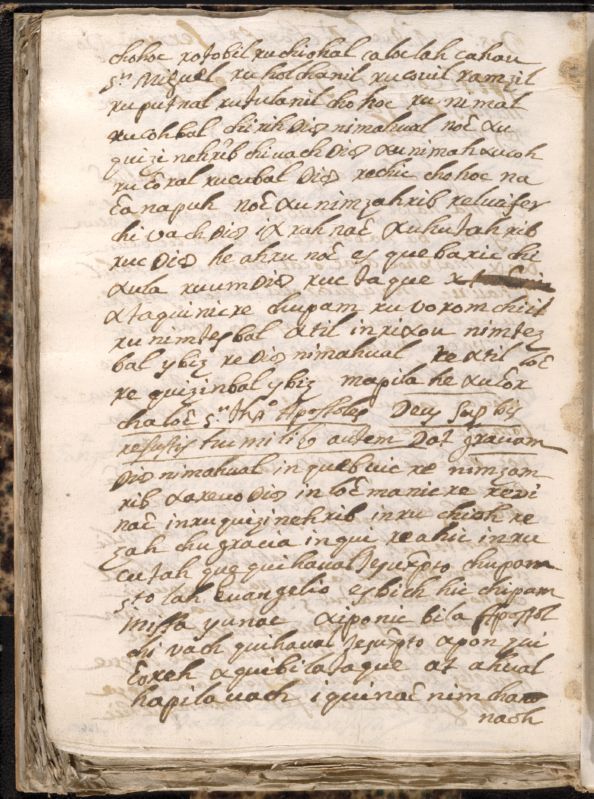 chohoc rotobil ruchiohal caloclah cahau
Sn Miguel ru holchanil ru couil ramzil
ru putnal ru tulanil chohoc ru nimal
ru cohbal chi rih Dios nimahual noc xu
quizinehrib chi vach Dios xu nimah xucoh
ru coral rucubal Dios rechic chohoc na
canapuh noc xu nimzahrib reluzifer
chi vach Dios ix rah nac xuhutahrib
ruc Dios he ahru noc es quebaric chi
xula ruum Dios ruc taque
xtaquinicre chupam ru vorom chiil
ru nimtesbal xtil inrixou nimtez
bal ybiz re Dios nimahual re xtil loc
re quizinbal ybiz mapila he xu cor
chaloc Sn Apostoles Deus Superbis
resistis humilibo autem Dat graciam
Dios nimahual in quebuic re nimzam
rib xarevo Dios in loc manicre rexi
nac inru quizinehrib inru chioh re
zah chu gracia inqui reahic inru
cutah que quihaual Jesuxpto chupam
Sto lah Euangelio esbich hic chipam
Missa yunac xiponic bila Apostol
chi vach quihaual Jesuxpto xpon qui
coreh xquibila taque at ahual
hapila vach iquinac nim cha
nach